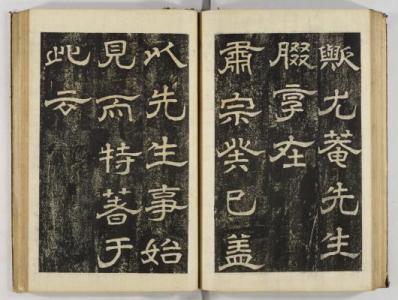 歟尤菴先生
腏享在
肅宗癸巳盖
以先生事始
見而特著于
此云